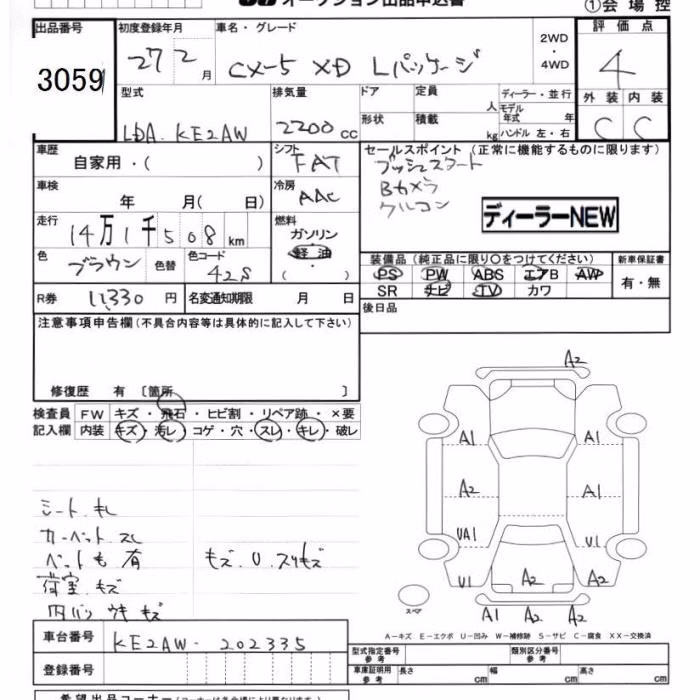 オークション出品申込書
①会場控
出品番号
3059
初度登録年月
27 2月
車名・グレード
CX-5 XD Lパッケージ
2WD
・
4WD
評価点
4
外装 内装
C C
型式
LDA-KE2AW
排気量
2200cc
ドア
形状
定員
人
積載
kg
ディーラー・並行
モデル
年式 年
ハンドル 左・右
車歴
自家用・( )
シフト
FAT
セールスポイント(正常に機能するものに限ります)
プッシュスタート
Bカメラ
クルコン
ディーラーNEW
車検
年 月( 日)
冷房
AAC
走行
14万1千508km
燃料
ガソリン
軽油
( )
色
ブラウン
色替
色コード
42S
装備品(純正品に限り〇をつけてください)
PS PW ABS エアB AW
SR ナビ TV カワ
新車保証書
有・無
R券 11330円
名変通知期限 月 日
後日品
注意事項申告欄(不具合内容等は具体的に記入して下さい)
修復歴 有 〔箇所 〕
検査員
記入欄
FW キズ・飛石・ヒビ割・リペア跡・×要
内装 キズ・汚レ・コゲ・穴・スレ・キレ・破レ
シート キレ
カーペット スレ
ペット毛 有
キズ.U.スリキズ
荷室 キズ
内バリ ウキ キズ
A2
A1
A1
A2
A1
UA1
U1
U1
A2
A2
A1
A2
A2
スペア
A-キズ E-エクボ U-凹み W-補修跡 S-サビ C-腐食 XX-交換済
車台番号
KE2AW-202335
登録番号
型式指定番号
参考
類別区分番号
参考
車庫証明用
参考
長さ cm
幅 cm
高さ cm
希望出品コーナー